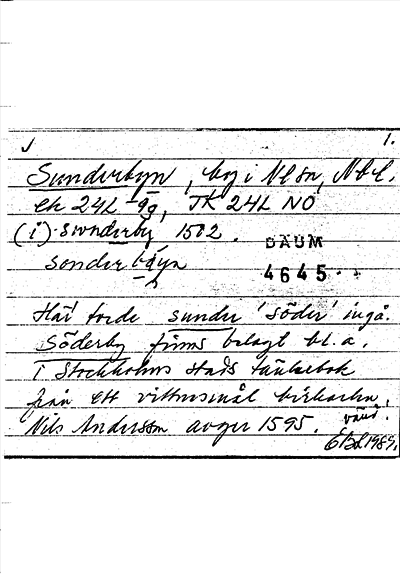 1.
Sunderbyn, by i Nlsn, Nbt.
ek 24L 9g, TK 24L NO
(i) Swnderby 1502.
DAUM
sonderbýn
4645
Här torde sunder 'söder' ingå.
Söderby finns belagt bl.a.
i Stockholms stads tänkebok
från ett vittnesmål birkarlen,
Nils Andersson avger 1595.
vänd.
EBL 1989.